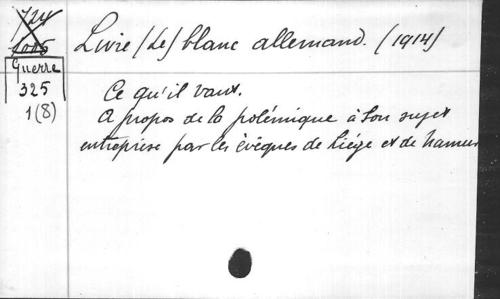 724
1065
Guerre
325
1(8)
Livre (Le) blanc allemand. (1914)
Ce qu'il vaut.
A propos de la polémique à son sujet
entreprise par les évêques de Liége et de Namur